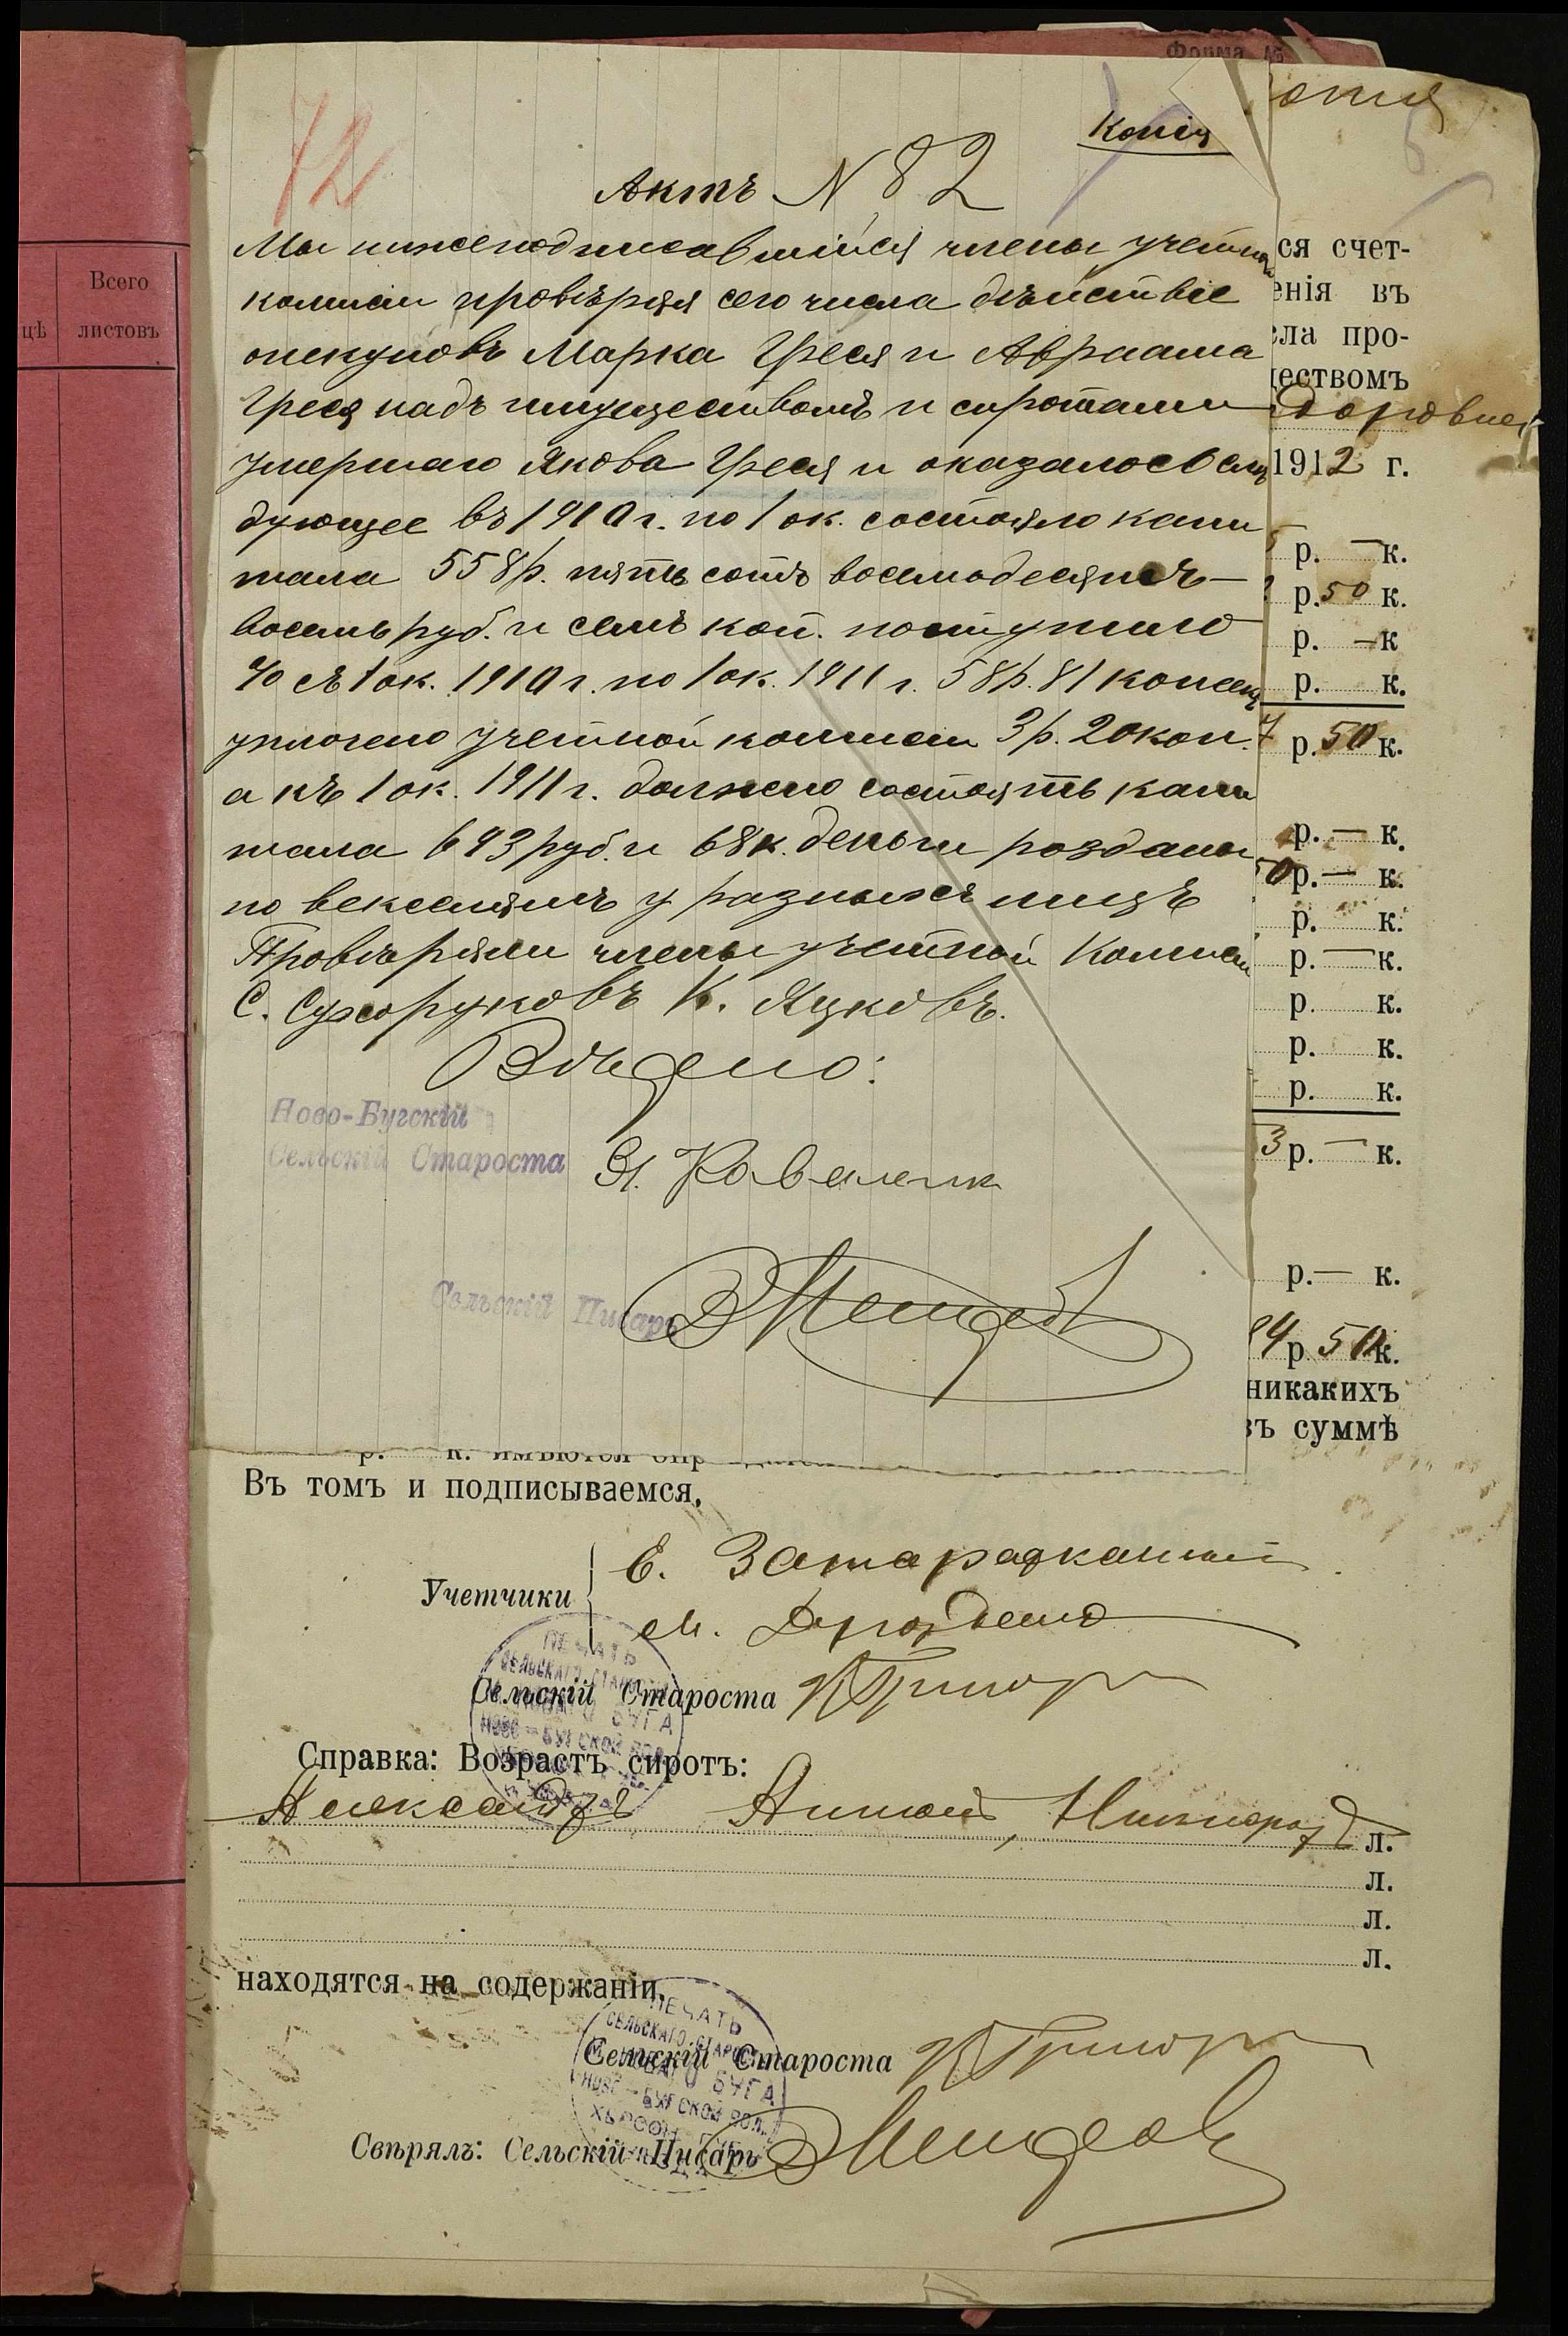 Форма №
Копія
72
Актъ N 82
Мы нижеподписавшійся члены учетной
комисіи провѣряя сего числа дѣйствіе
опекуновъ Марка Греся и Авраама
Греся надъ имуществомъ и сиротами
умершаго Якова Греся и оказалось слѣ
дующее въ 1910 г. по 1 ок. состояло капи
тала 558 р. пять сотъ восемьдесятъ
восемь руб. и семъ коп. поступило
% съ 1 ок. 1910 г. по 1 ок. 1911 г. 58 р. 81 копеек
уплочено учетной комисіи 3 р. 20 коп.
а къ 1 ок. 1911 г. должно состоять капи
тала 643 руб. и 68 к. деньги розданы
по векселямъ у разныхъ лицъ
Провѣряли члены учетной Комисіи
С. Сухоруковъ К. Яцковъ.
Вѣрно:
Ново-Бугскій
Сельскій Староста Я. Коваленк
Сельскій Писарь
Всего
цѣ листовъ
опія
ся счет-
енія въ
сла про-
ществомъ
1912 г.
р. — к.
р. 50 к.
р. — к
р. к.
7 р. 50 к.
р. — к.
50 р. — к.
р. к.
р. — к.
р. к.
р. к.
р. к.
3 р. — к.
р. — к.
4 р 50 к.
никакихъ
въ суммѣ
р. к. имѣются опр
Въ томъ и подписываемся.
Учетчики
Е.
М. Дрозденко
Сельскій Староста
Справка: Возрастъ сиротъ:
Александръ Антонъ, Никифоръ л.
л.
л.
л.
находятся на содержаніи.
ПЕЧАТЬ
СЕЛЬСКАГО СТАРОСТЫ
НОВАГО БУГА
НОВО-БУГСКОЙ ВОЛ.
ХЕРСОН.
Сельскій Староста
Свѣрялъ: Сельскій Писарь